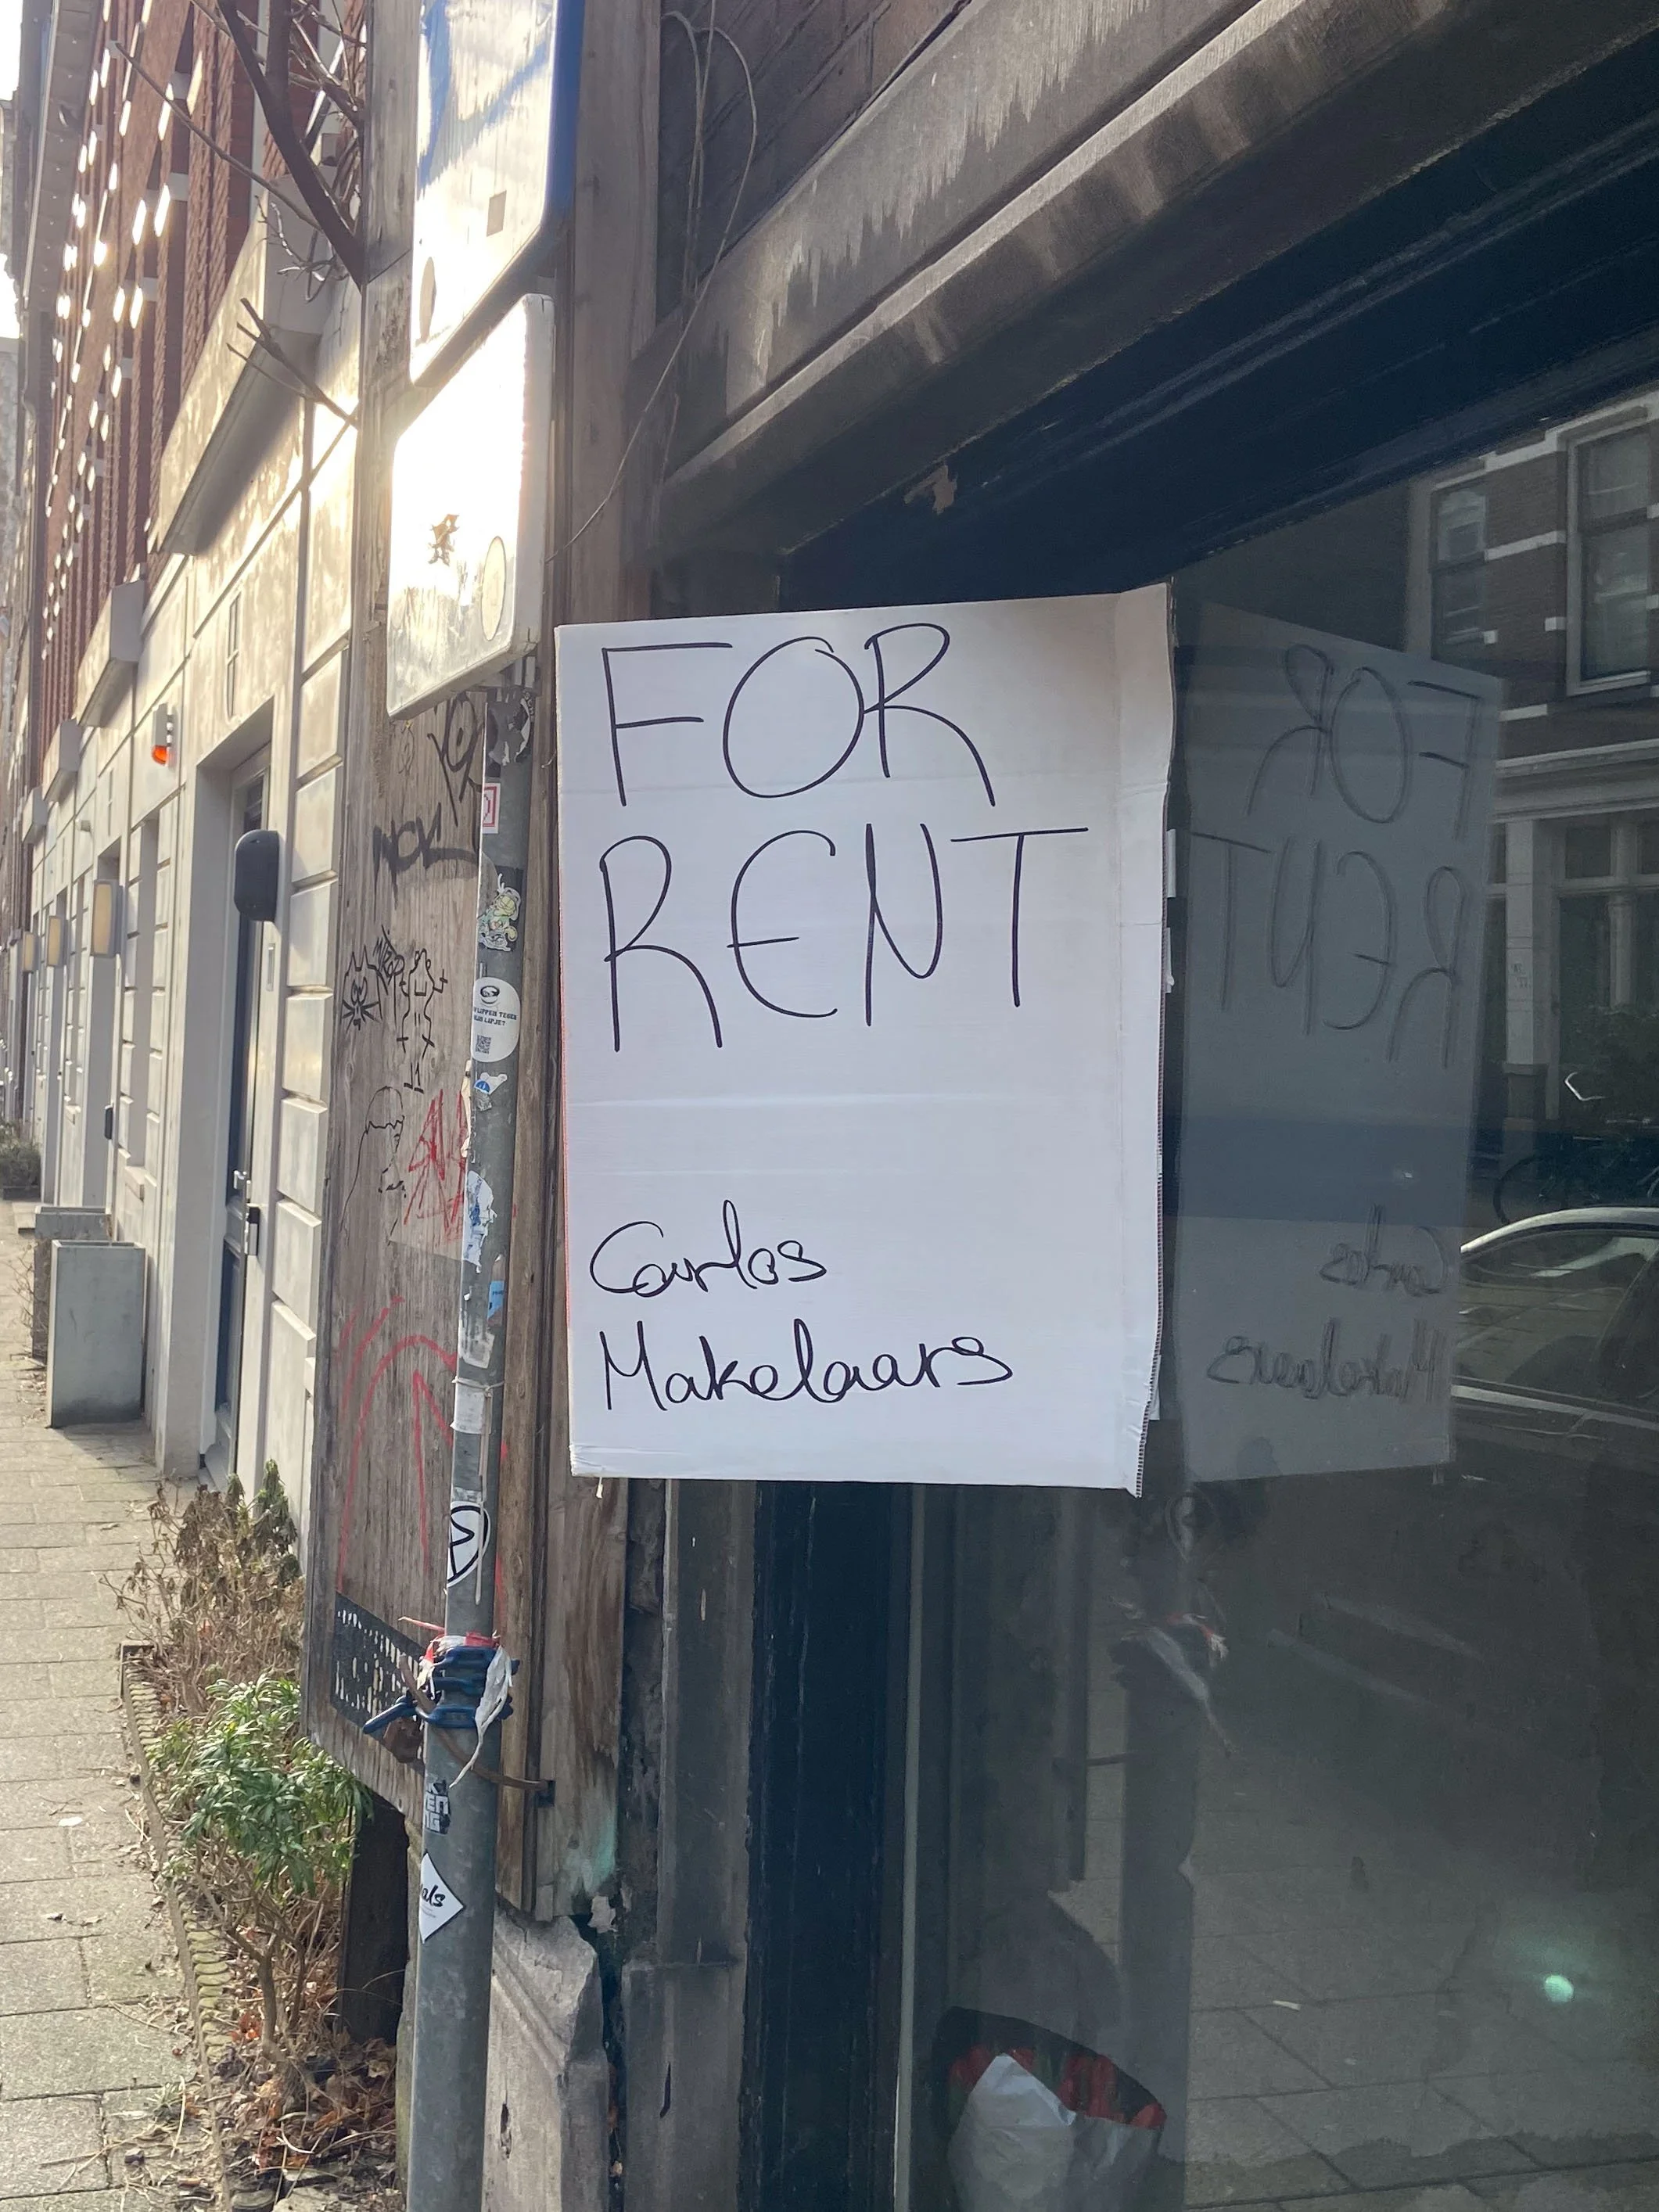 FOR
RENT
Carlos
Makelaars